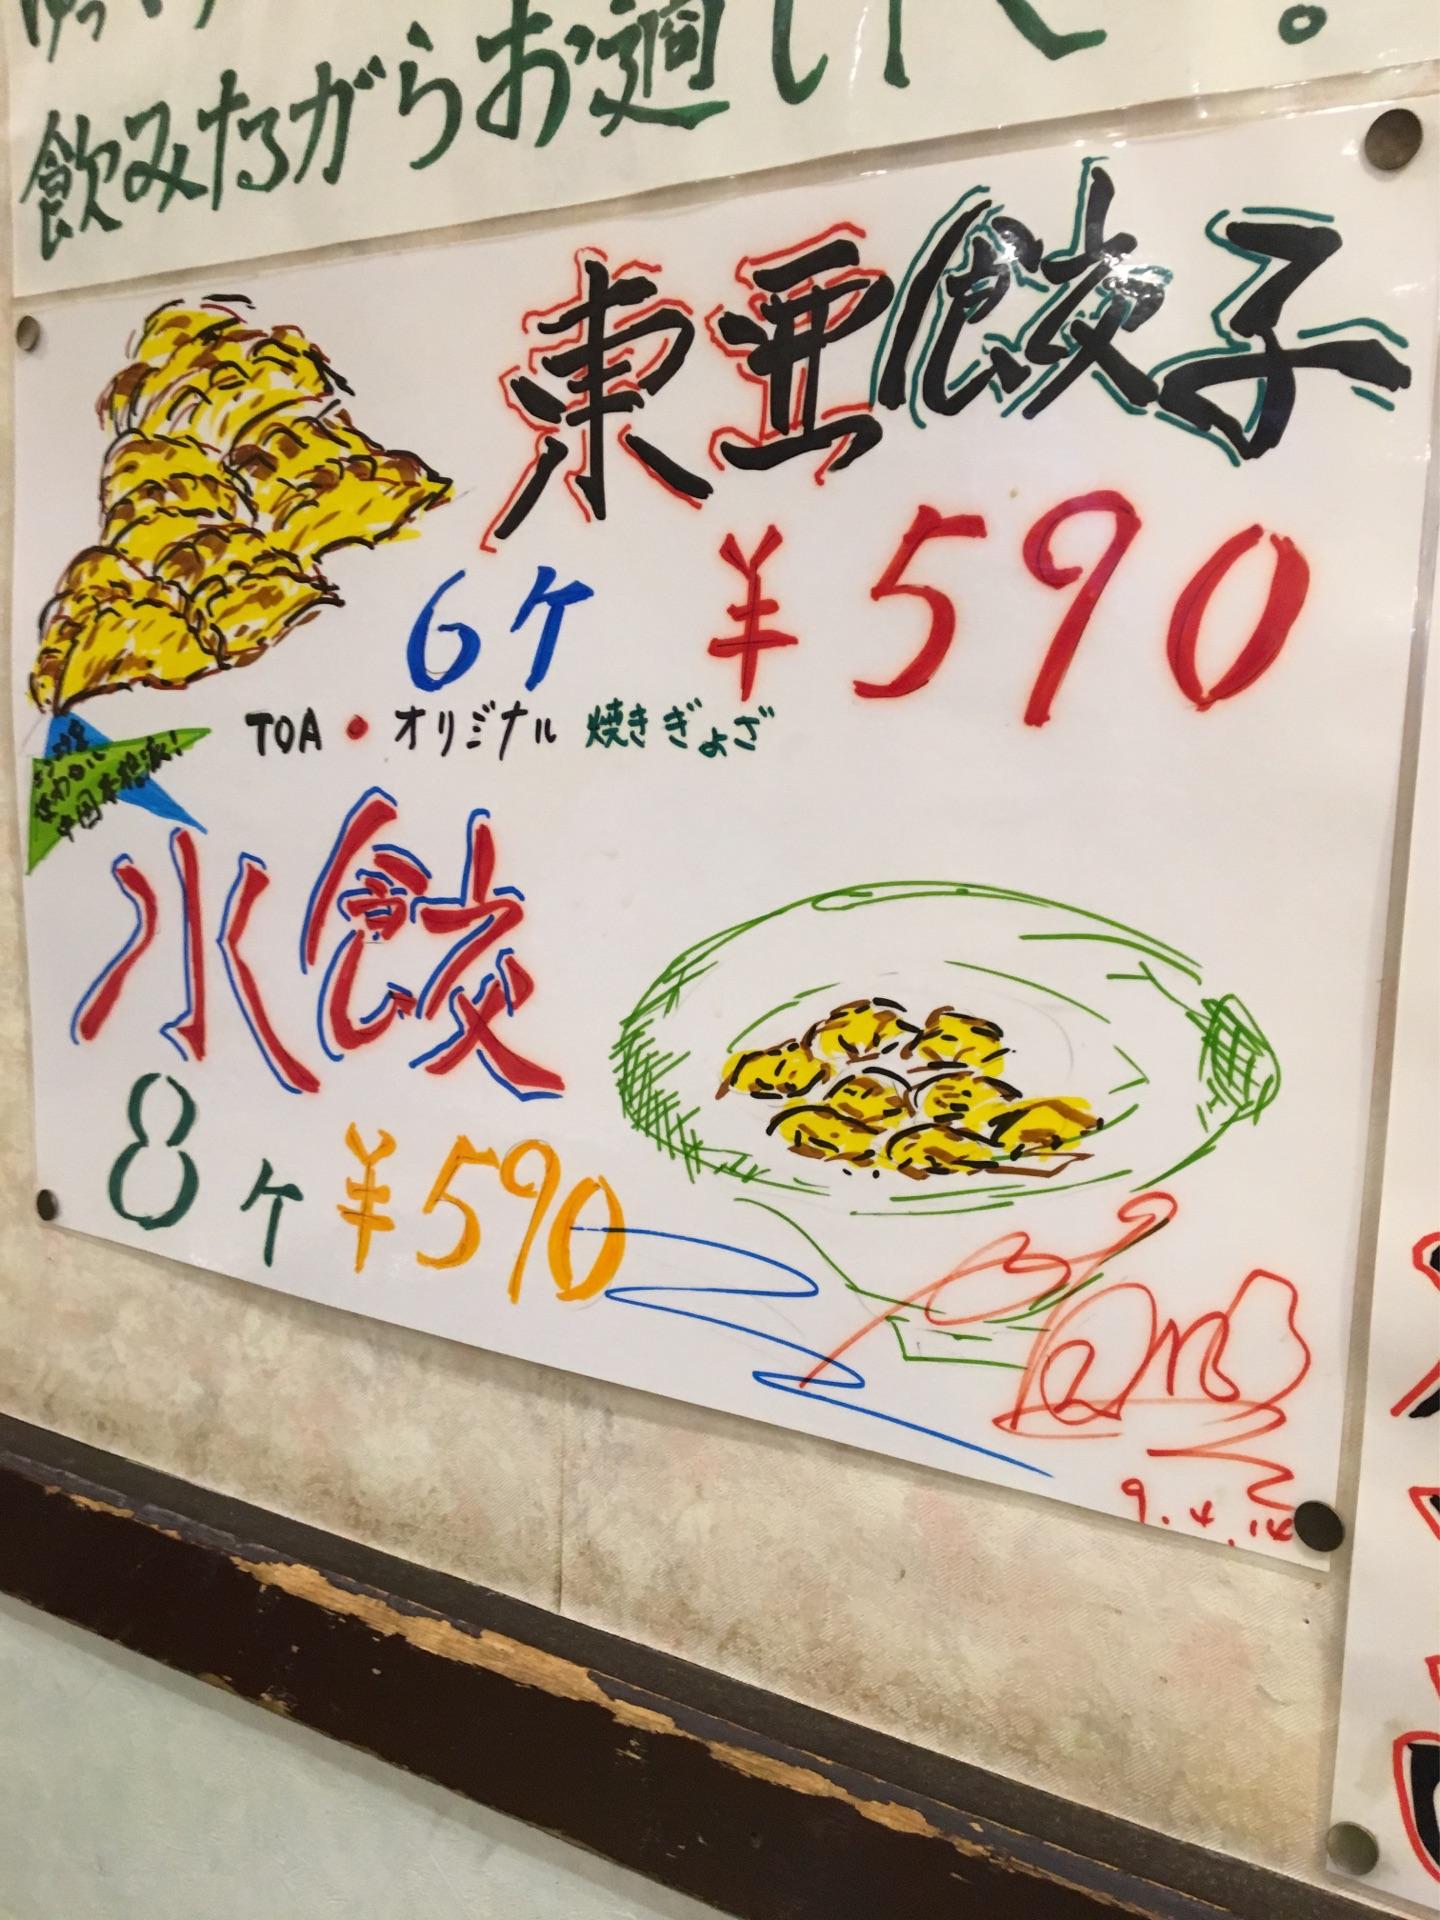 飲みながらお過し下
東亜餃子
6ケ ¥590
TOA・オリジナル 焼きぎょざ
味わい
中国本格派!
水餃
8ケ ¥590
9.4.14